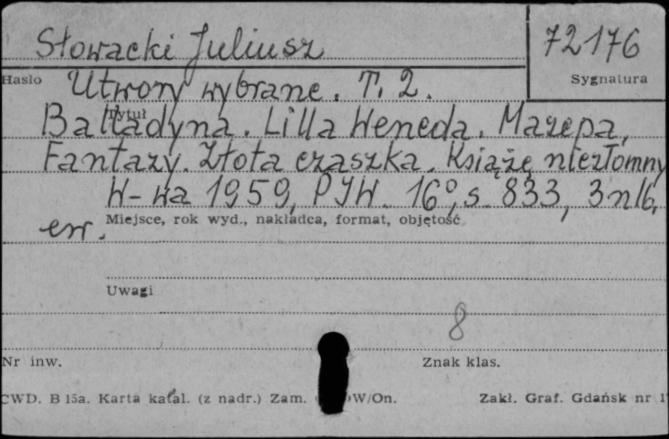 Słowacki Juliusz
72176
Hasło
Sygnatura
Utwory wybrane. T. 2.
Tytuł
Balladyna. Lilla Weneda. Mazepa,
Fantazy. Złota czaszka. Książę niezłomny
W-wa 1959, PIW. 16°, s. 833, 3 nlb,
err.
Miejsce, rok wyd., nakładca, format, objętość
Uwagi
8
Nr inw.
Znak klas.
CWD. B 15a. Karta katal. (z nadr.) Zam. W/On.
Zakł. Graf. Gdańsk nr